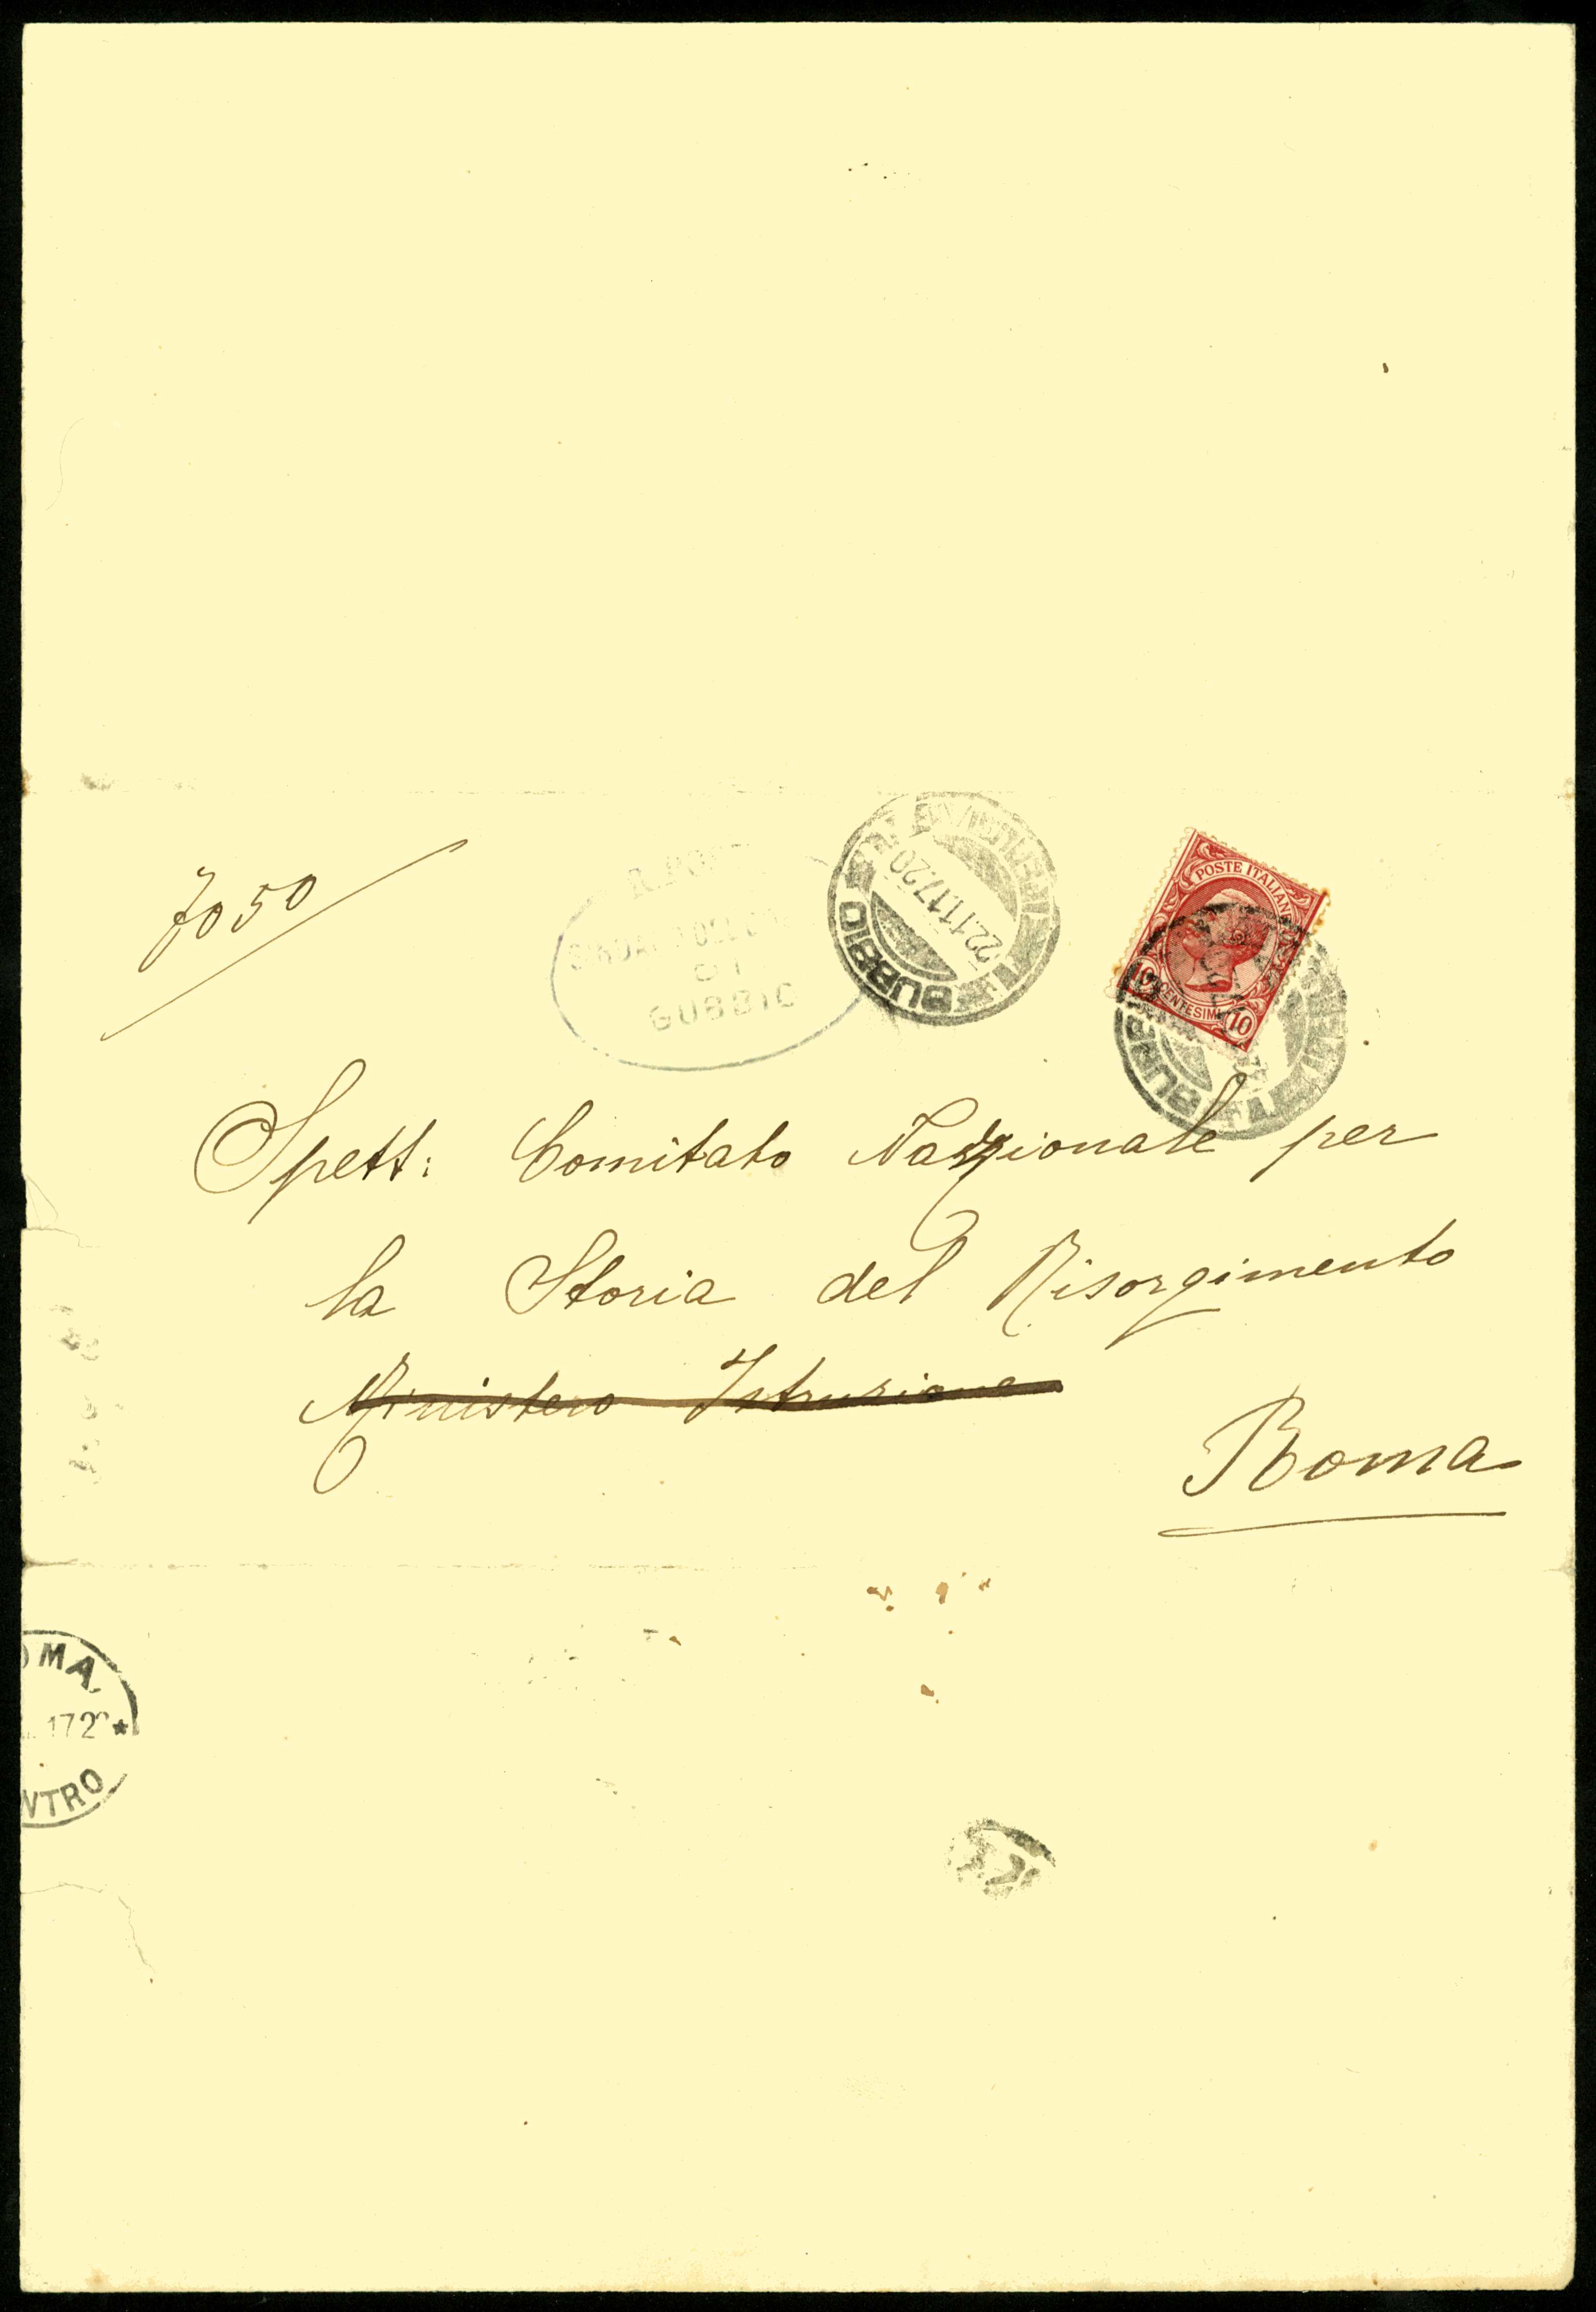 7050
GUBBIO
GUBBIO
22.11.17.20
POSTE ITALIANE
10 CENTESIMI 10
Spett: Comitato Nazionale per
la Storia del Risorgimento
Ministero Istruzione
Roma
OMA
17 2 *
NTRO